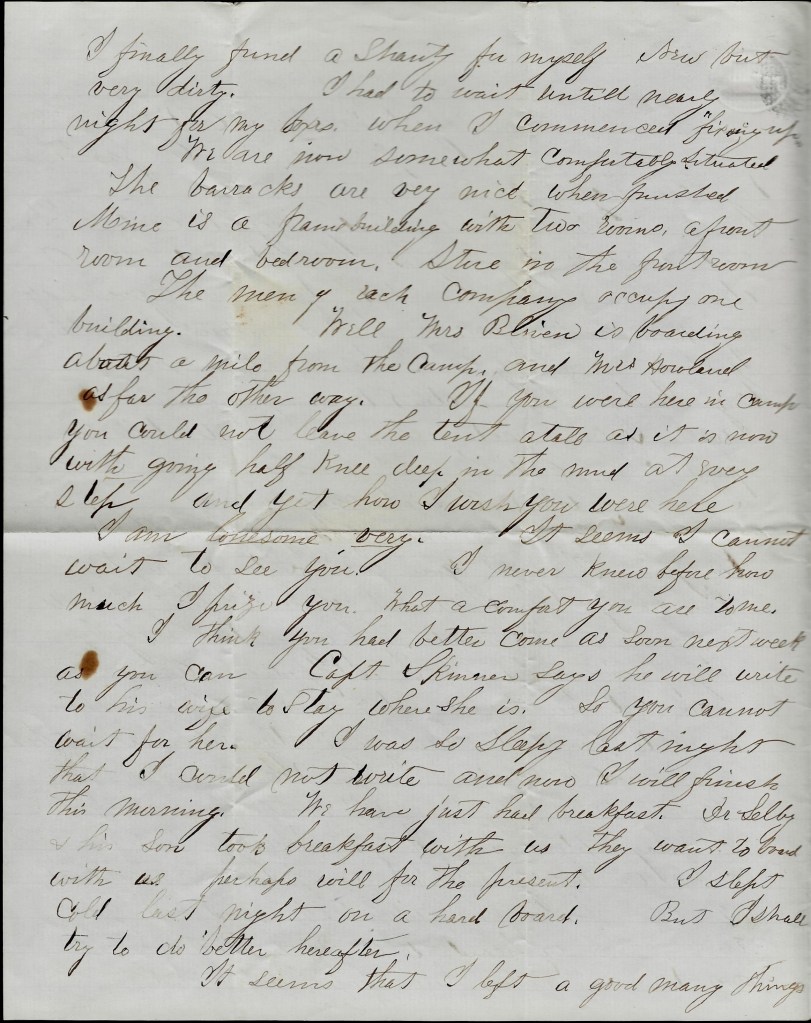 I finally fund a Shanty for myself New but
very dirty. I had to wait untill nearly
night for my when I commenced "fixing up"
We are now somewhat Comfortably Situated
The barracks are very nice when finished
Mine is a frame building with two rooms, a front
room and bedroom. Stove in the front room
The men of each Company occupy one
building. Well Mrs Bliven is boarding
about a mile from the Camp, and Mrs Howland
as far the other way. If you were here in camp
you could not leave the tent atall as it is now
with going half Knee deep in the mud at every
step and yet how I wish you were here
I am lonesome very. It seems I cannot
wait to see you. I never Knew before how
much I prize you. What a comfort you are to me.
I think you had better come as soon next week
as you can Capt Skinner says he will write
to his wife to Stay where she is. So you cannot
wait for her. I was so sleepy last night
that I could not write and now I will finish
this morning. We have just had breakfast. Dr Selby
& his Son took breakfast with us they want to board
with us perhaps will for the present. I slept
Cold last night on a hard board. But I shall
try to do better hereafter.
It seems that I left a good many things